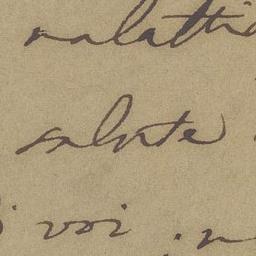 malattia
salute
voi